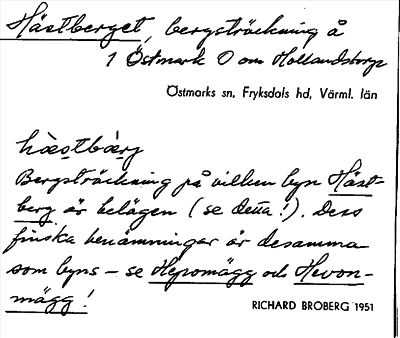 Hästberget, bergsträckning å
1 Östmark O om Hollandstorp
Östmarks sn, Fryksdals hd, Värml. län
hæstbærg
Bergsträckning på vilken byn Häst-
berg är belägen (se detta!). Dess
finska benämningar är desamma
som byns – se Hepomägg och Hevon-
mägg!
RICHARD BROBERG 1951